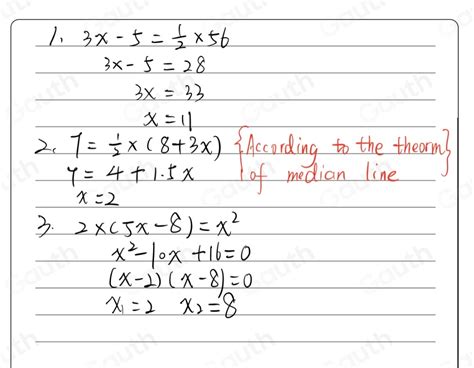 1. 3x - 5 = 1/2 × 56
3x - 5 = 28
3x = 33
x = 11
2. 7 = 1/2 × (8 + 3x) {According to the theorm
7 = 4 + 1.5x of median line}
x = 2
3. 2 × (5x - 8) = x²
x² - 10x + 16 = 0
(x - 2)(x - 8) = 0
x₁ = 2 x₂ = 8